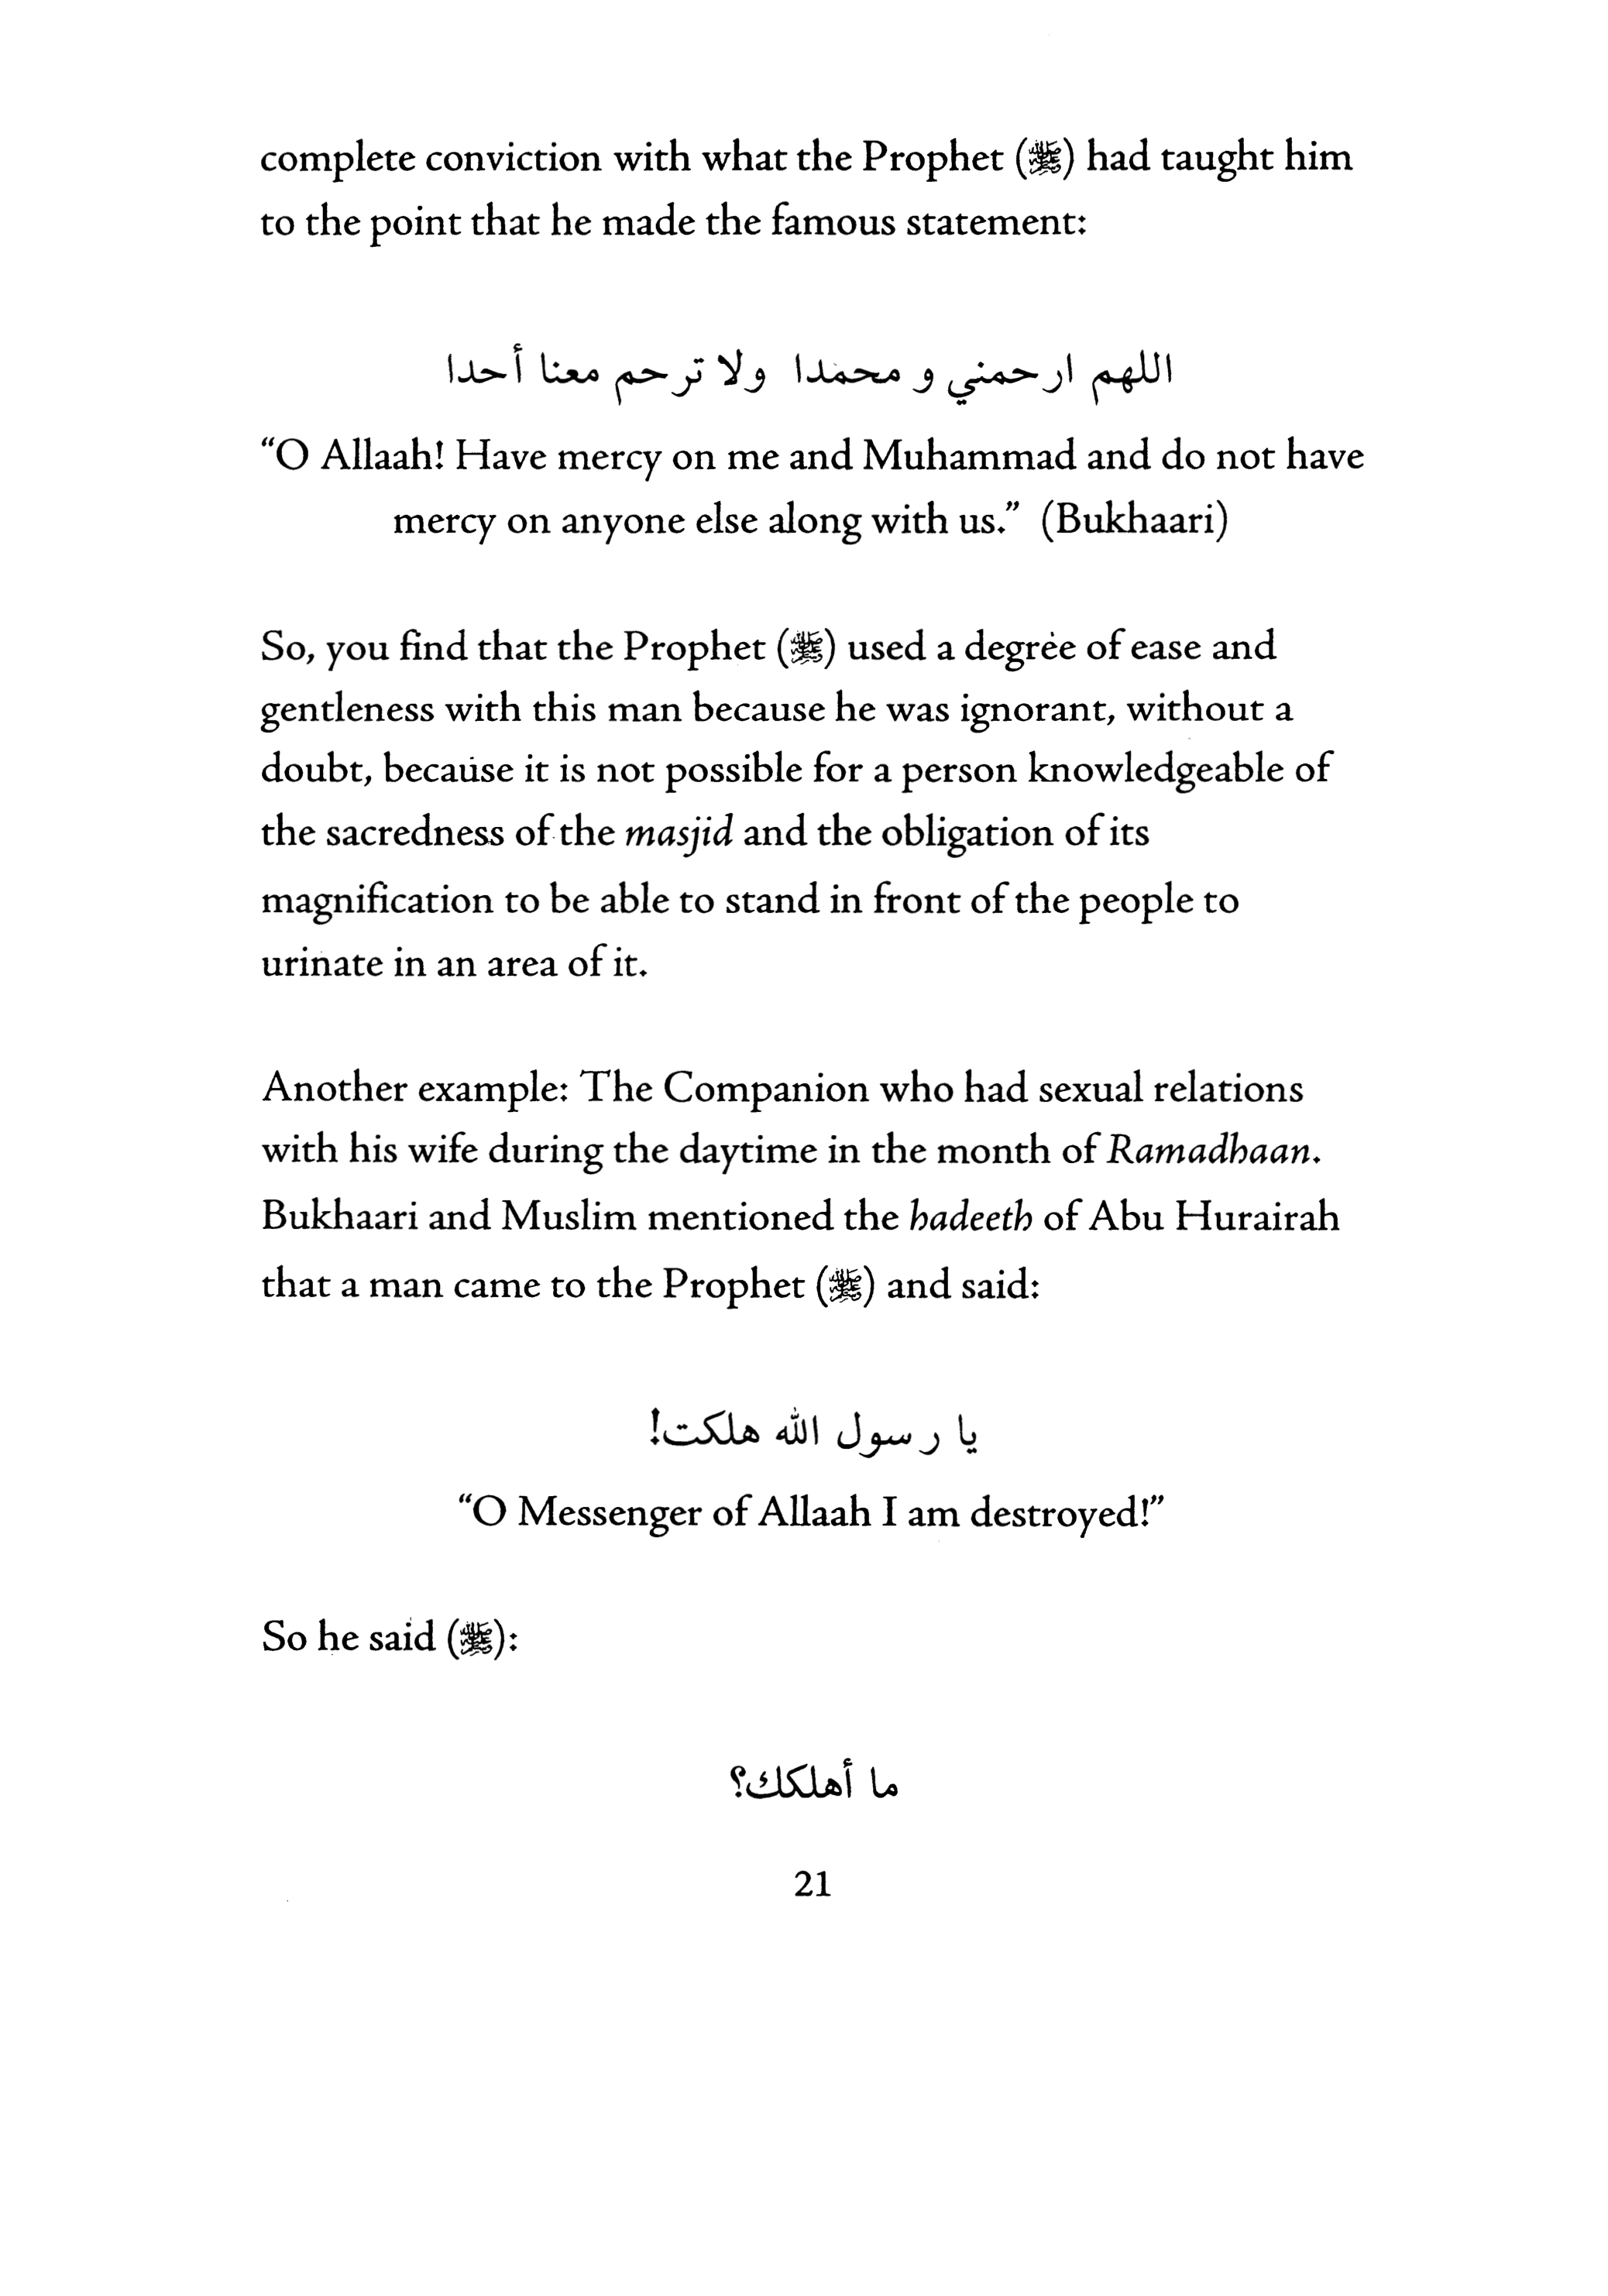 complete conviction with what the Prophet (ﷺ) had taught him
to the point that he made the famous statement:
اللهم ارحمني و محمدا ولا ترحم معنا أحدا
“O Allaah! Have mercy on me and Muhammad and do not have
mercy on anyone else along with us.” (Bukhaari)
So, you find that the Prophet (ﷺ) used a degree of ease and
gentleness with this man because he was ignorant, without a
doubt, because it is not possible for a person knowledgeable of
the sacredness of the masjid and the obligation of its
magnification to be able to stand in front of the people to
urinate in an area of it.
Another example: The Companion who had sexual relations
with his wife during the daytime in the month of Ramadhaan.
Bukhaari and Muslim mentioned the hadeeth of Abu Hurairah
that a man came to the Prophet (ﷺ) and said:
يا رسول الله هلكت!
“O Messenger of Allaah I am destroyed!”
So he said (ﷺ):
ما أهلكك؟
21